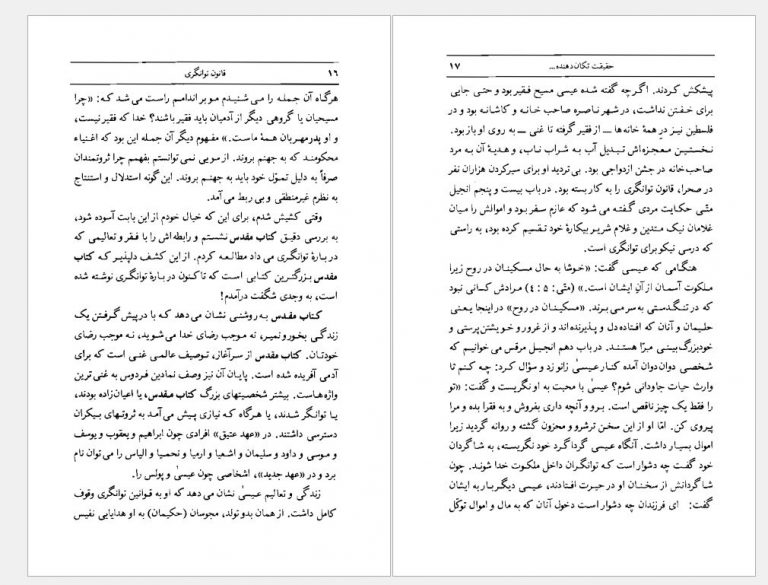 ۱۶ قانون توانگری
هرگاه آن جمله را می شنیدم مو بر اندامم راست می شد که: «چرا
مسیحیان یا گروهی دیگر از آدمیان باید فقیر باشند؟ خدا که فقیر نیست،
و او پدر مهربان همهٔ ماست.» مفهوم دیگر آن جمله این بود که اغنیاء
محکومند که به جهنم بروند. از سویی نمی توانستم بفهمم چرا ثروتمندان
صرفاً به دلیل تموّل خود باید به جهنم بروند. این گونه استدلال و استنتاج
به نظرم غیرمنطقی و بی ربط می آمد.
وقتی کشیش شدم، برای این که خیال خودم از این بابت آسوده شود،
به بررسی دقیق کتاب مقدس نشستم و رابطه اش را با فقر و تعالیمی که
دربارهٔ توانگری می داد مطالعه کردم. از این کشف دلپذیر که کتاب
مقدس بزرگترین کتابی است که تاکنون دربارهٔ توانگری نوشته شده
است، به وجدی شگفت درآمدم!
کتاب مقدس به روشنی نشان می دهد که با در پیش گرفتن یک
زندگی بخور و نمیر، نه موجب رضای خدا می شوید، نه موجب رضای
خودتان. کتاب مقدس از سرآغاز، توصیف عالمی غنی است که برای
آدمی آفریده شده است. پایان آن نیز وصف نمادین فردوس به غنی ترین
واژه هاست. بیشتر شخصیتهای بزرگ کتاب مقدس، یا اعیان زاده بودند،
یا توانگر شدند، یا هرگاه که نیازی پیش می آمد به ثروتهای بیکران
دسترسی داشتند. در «عهد عتیق» افرادی چون ابراهیم و یعقوب و یوسف
و موسی و داود و سلیمان و اشعیا و ارمیا و نحمیا و الیاس را می توان نام
برد و در «عهد جدید»، اشخاصی چون عیسیٰ و پولس را.
زندگی و تعالیم عیسیٰ نشان می دهد که او به قوانین توانگری وقوف
کامل داشت. از همان بدو تولد، مجوسان (حکیمان) به او هدایایی نفیس
حقیقت تکان دهنده ... ۱۷
پیشکش کردند. اگرچه گفته شده عیسی مسیح فقیر بود و حتی جایی
برای خفتن نداشت، در شهر ناصره صاحب خانه و کاشانه بود و در
فلسطین نیز درِ همهٔ خانه ها ــ از فقیر گرفته تا غنی ــ به روی او باز بود.
نخستین معجزه اش تبدیل آب به شراب ناب، و هدیهٔ آن به مرد
صاحب خانه در جشن ازدواجی بود. بی تردید او برای سیر کردن هزاران نفر
در صحرا، قانون توانگری را به کار بسته بود. در باب بیست و پنجم انجیل
متّی حکایت مردی گفته می شود که عازم سفر بود و اموالش را میان
غلامان نیک متدین و غلام شریر بیکارهٔ خود تقسیم کرده بود، به راستی
که درسی نیکو برای توانگری است.
هنگامی که عیسی گفت: «خوشا به حال مسکینان در روح زیرا
ملکوت آسمان از آنِ ایشان است.» (متّی: ۵ : ۴) مرادش کسانی نبود
که در تنگدستی به سر می برند. «مسکینان در روح» در اینجا یعنی
حلیمان و آنان که افتاده دل و پذیرنده اند و از غرور و خویشتن پرستی و
خودبزرگ بینی مبرّا هستند. در باب دهم انجیل مرقس می خوانیم که
شخصی دوان دوان آمده کنار عیسیٰ زانو زد و سؤال کرد: چه کنم تا
وارث حیات جاودانی شوم؟ عیسیٰ با محبت به او نگریست و گفت: «تو
را فقط یک چیز ناقص است. برو و آنچه داری بفروش و به فقرا بده و مرا
پیروی کن. امّا او از این سخن ترشرو و محزون گشته و روانه گردید زیرا
اموال بسیار داشت. آنگاه عیسی گرداگرد خود نگریسته، به شاگردان
خود گفت چه دشوار است که توانگران داخل ملکوت خدا شوند. چون
شاگردانش از سخنان او در حیرت افتادند، عیسی دیگر بار به ایشان
گفت: ای فرزندان چه دشوار است دخول آنان که به مال و اموال توکّل